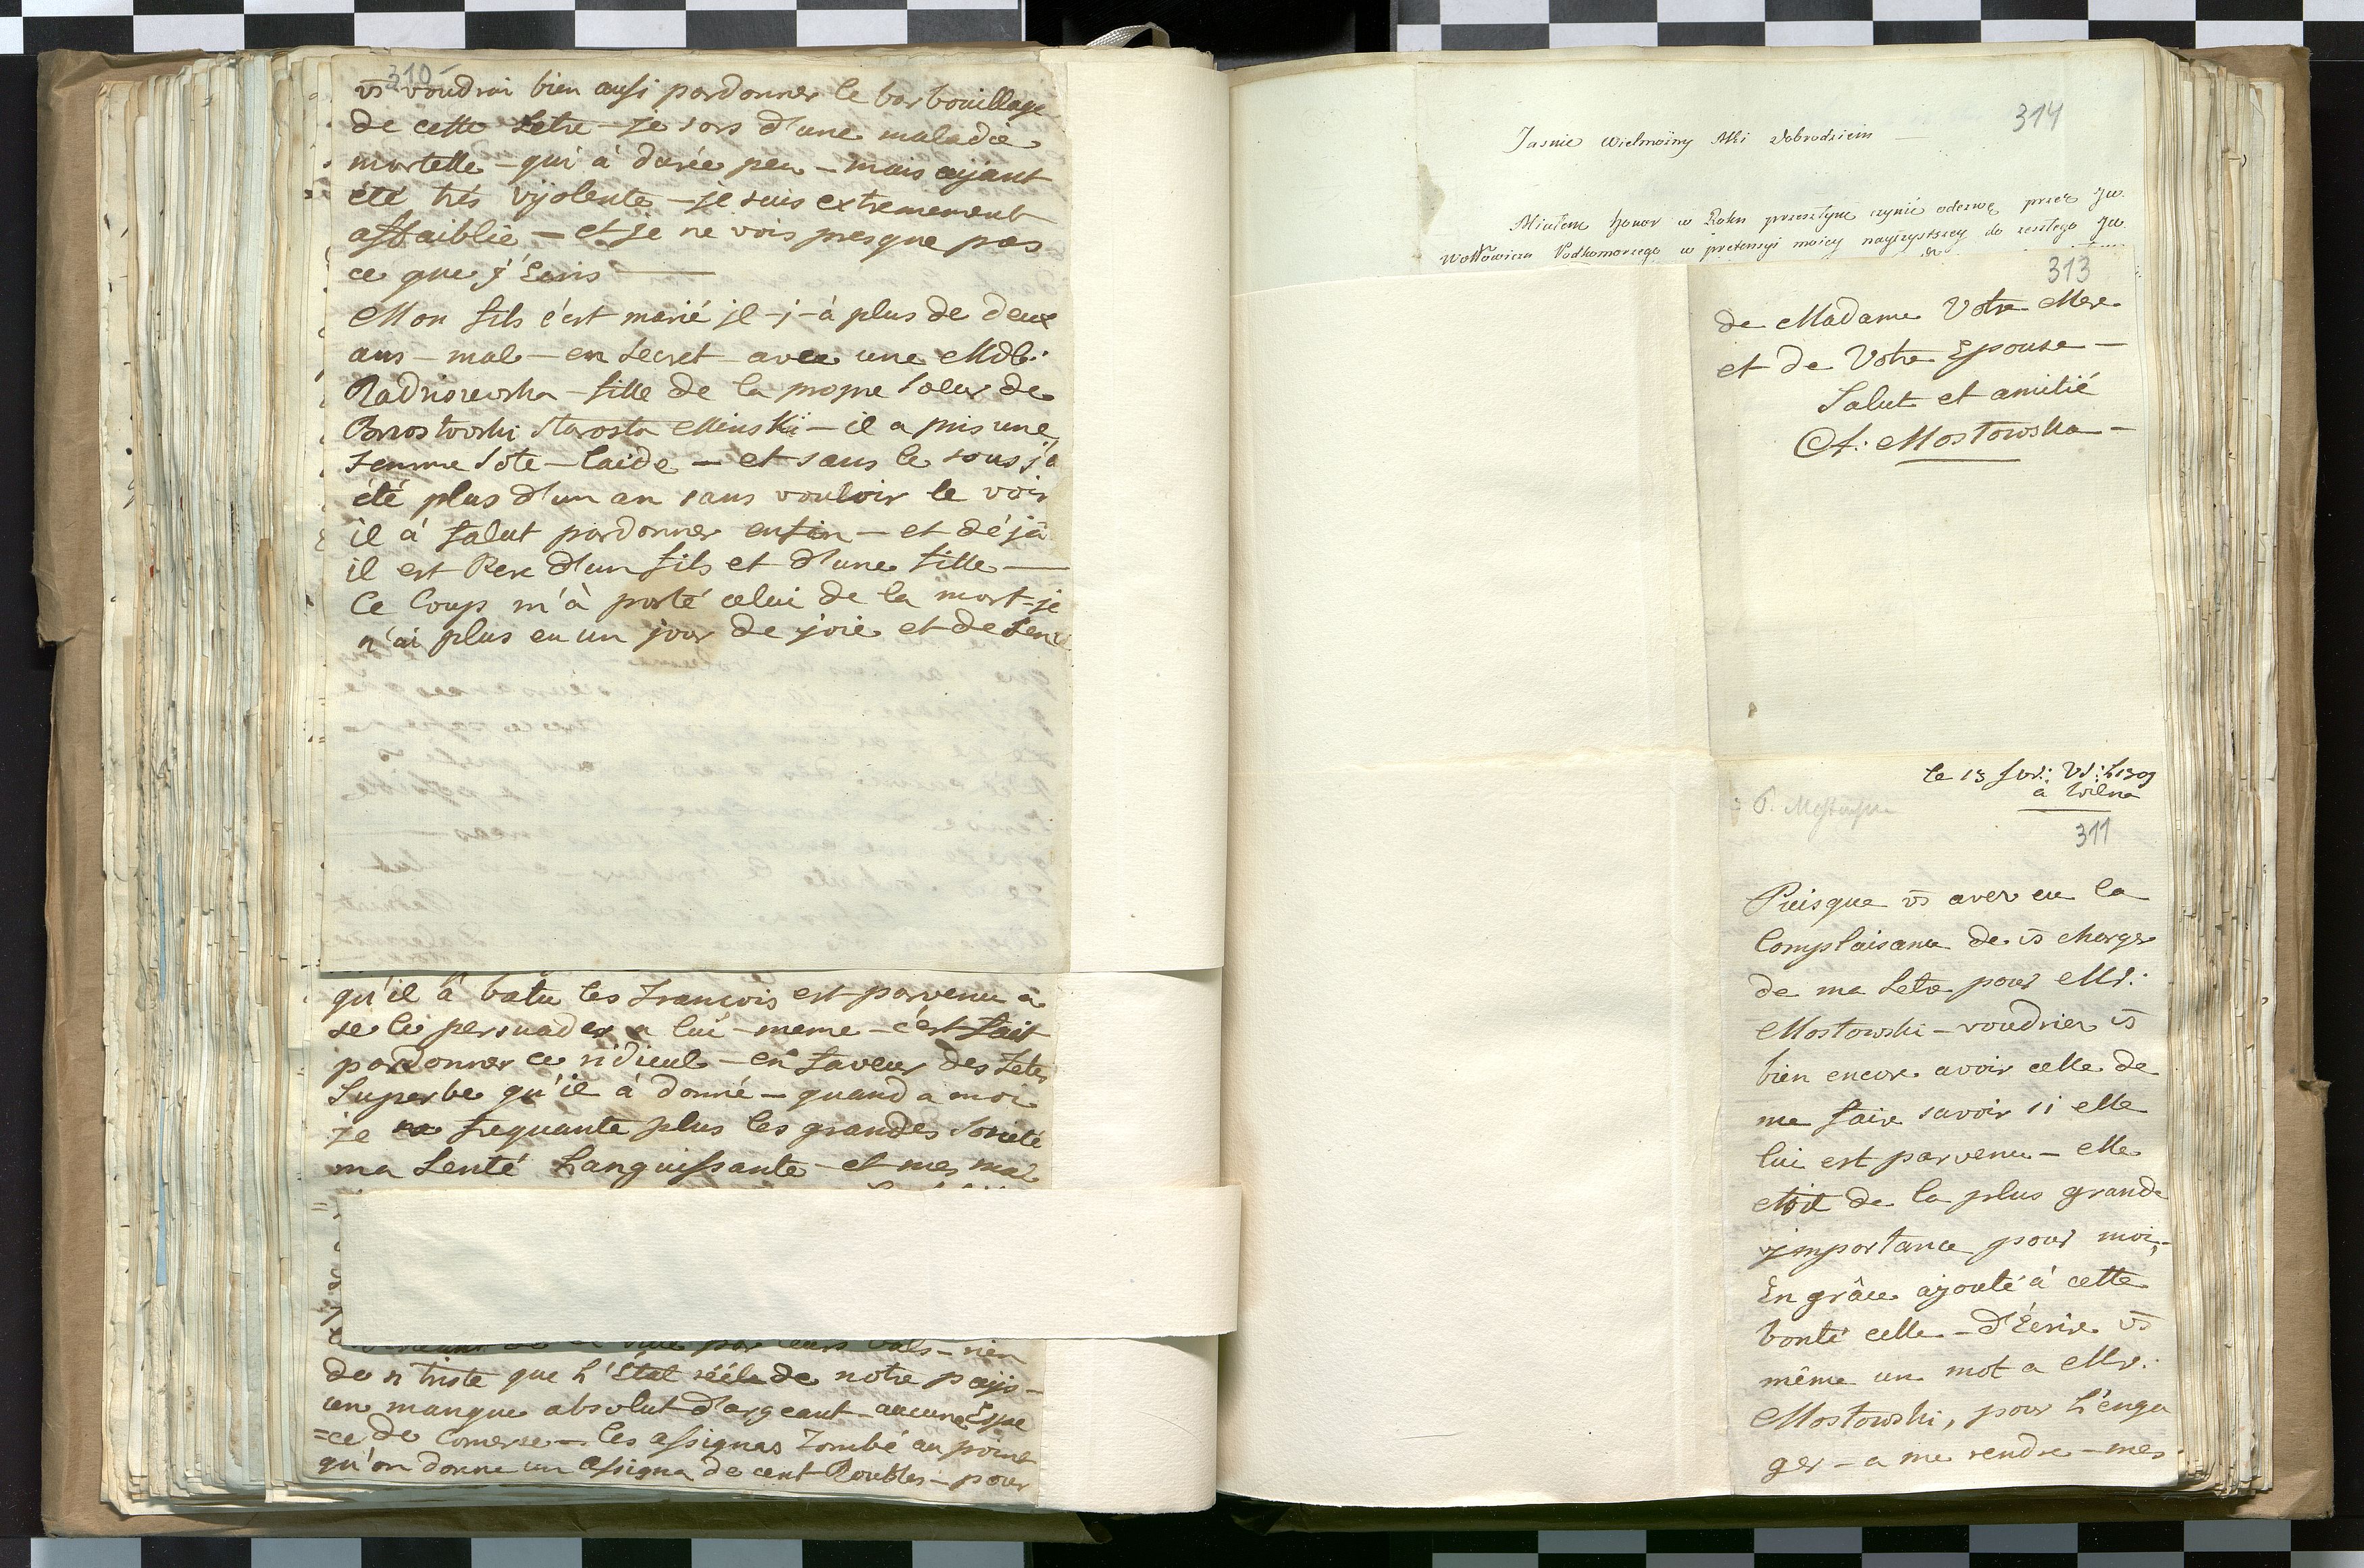 310
vs̄ voudroi bien aussi pardonner le barbouillage
de cette Letre – je sors d'une maladie
mortelle – qui à durée peu – mais aÿant
été trés vÿolente – je suis extremement
affaiblie – et je ne vois presque pas
ce que j'Ecris —
Mon fils c'est marié jl-j-à plus de deux
ans – mal – en secret – avec une Mdle:
fille de la propre soeur de
Starosta Minski – il a pris une
femme sote – laide – et sans le sous j'a
été plus d'un an sans vouloir le voir
il à falut pardonner enfin – et déjà
il est Pere d'un fils et d'une fille —
Ce Coup m'à porté celui de la mort – je
n'ai plus eu un jour de joie et de sen
qu'il à batu les François est parvenu a
se le persuader a lui-meme – c'est fait
pardonner ce ridicul – en faveur des fetes
Superbe qu'il à donné – quand a moi
je ne frequante plus les grandes Societé
ma Senté Languissante – et mes mal
par leurs bals – rien
de si triste que L'Etat réèle de notre païjs –
un manque absolut d'argeant – aucune Espe
=ce de Comerse – les assignas tombé au point
qu'on donne un assigna de cent Roubles – pour
314
Jasnie Wielmożny Mci Dobrodzieiu —
Miałem honor w Roku przeszłym czynić odezwę przez JW.
Wołłowicza Podkomorzego w pretensyi moiey nayczystszey do zeszłego JW
313
de Madame Votre Mere
et de Votre Epouse –
Salut et amitié
A: Mostowska –
le 13
a Wilna
311
Puisque vs̄ avez eu la
Complaisance de vs̄ charger
de ma Letre pour Mr:
Mostowski – voudriez vs̄
bien encore avoir celle de
me faire savoir si elle
lui est parvenu – elle
etoit de la plus grande
jmportance pour moi, –
En grâce ajouté à cette
bonté celle – d'Ecrire vs̄
même un mot a Mr:
Mostowski, pour L'enga
ger – a me rendre – mes